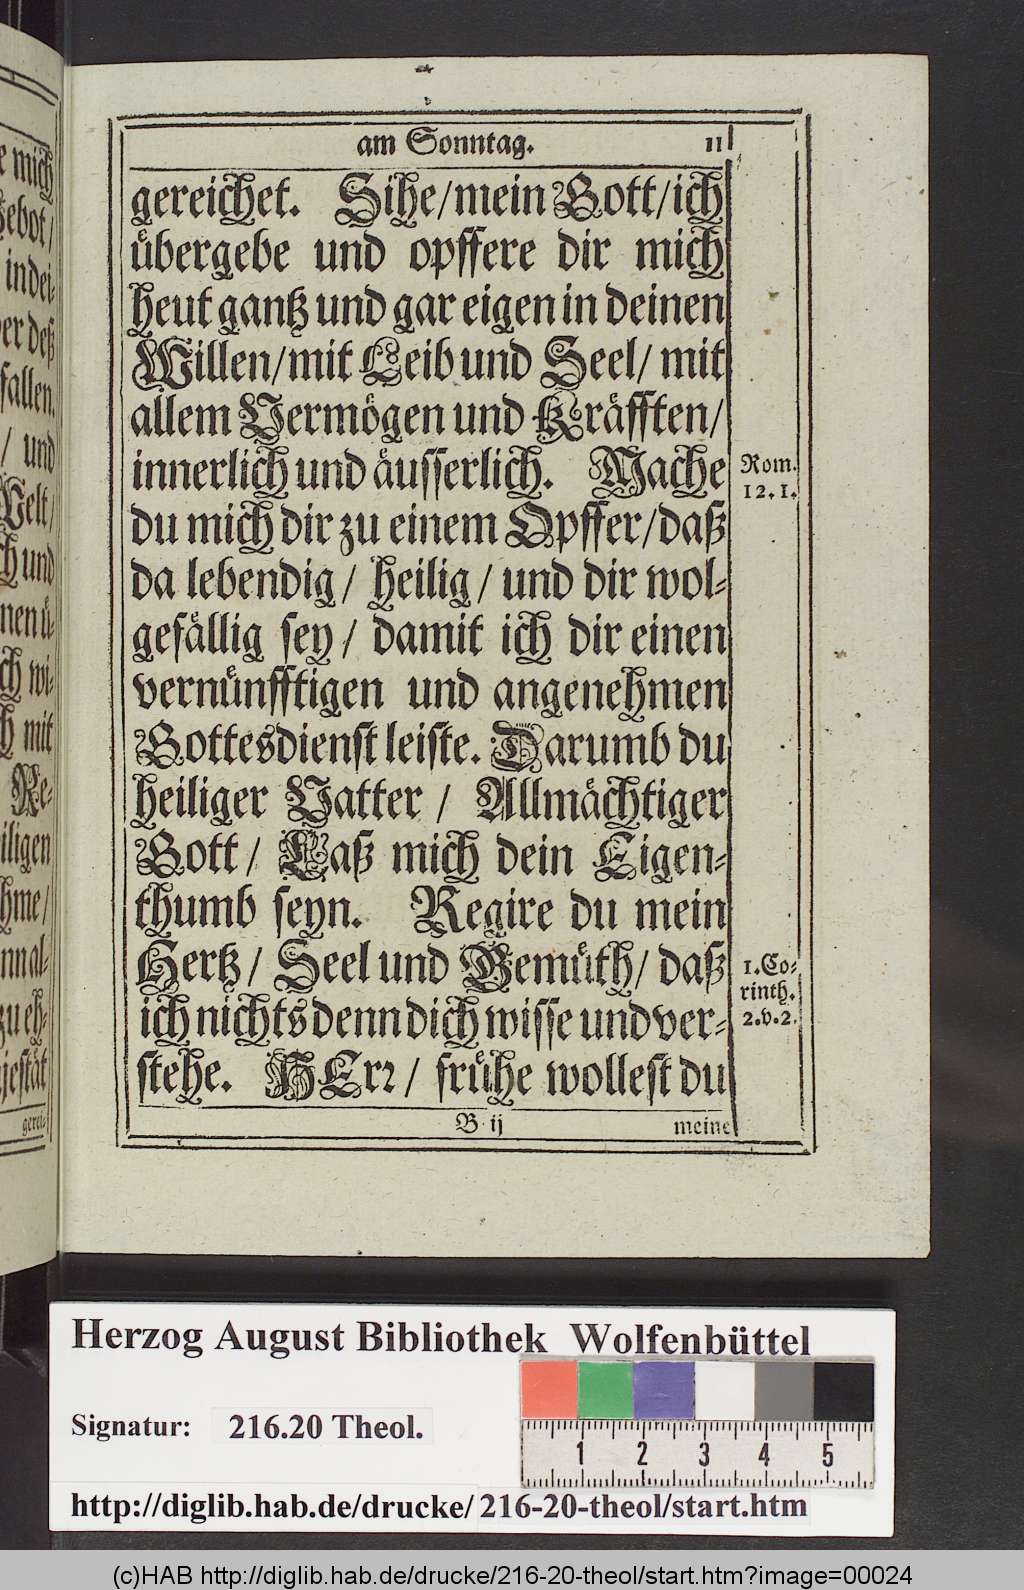 am Sonntag. 11
gereichet. Sihe/mein Gott/ich
übergebe und opffere dir mich
heut gantz und gar eigen in deinen
Willen/mit Leib und Seel/ mit
allem Vermögen und Kräfften/
innerlich und äusserlich. Mache
du mich dir zu einem Opffer/daß
da lebendig/ heilig/ und dir wol-
gefällig sey/ damit ich dir einen
vernünfftigen und angenehmen
Gottesdienst leiste. Darumb du
heiliger Vatter/ Allmächtiger
Gott/ Laß mich dein Eigen-
thumb seyn. Regire du mein
Hertz/ Seel und Gemüth/ daß
ich nichts denn dich wisse und ver-
stehe. HErr/ frühe wollest du
Rom.
12. 1.
1. Co-
rinth.
2. v. 2.
B ij meine
e mich
ebot/
in dei-
er deß
fallen.
/ und
Welt/
ch und
nen ü-
ch wi-
h mit
Re-
iligen
hme/
nn al-
zu eh-
jestät
gerei-
Herzog August Bibliothek Wolfenbüttel
Signatur: 216.20 Theol.
1 2 3 4 5
http://diglib.hab.de/drucke/216-20-theol/start.htm
(c)HAB http://diglib.hab.de/drucke/216-20-theol/start.htm?image=00024